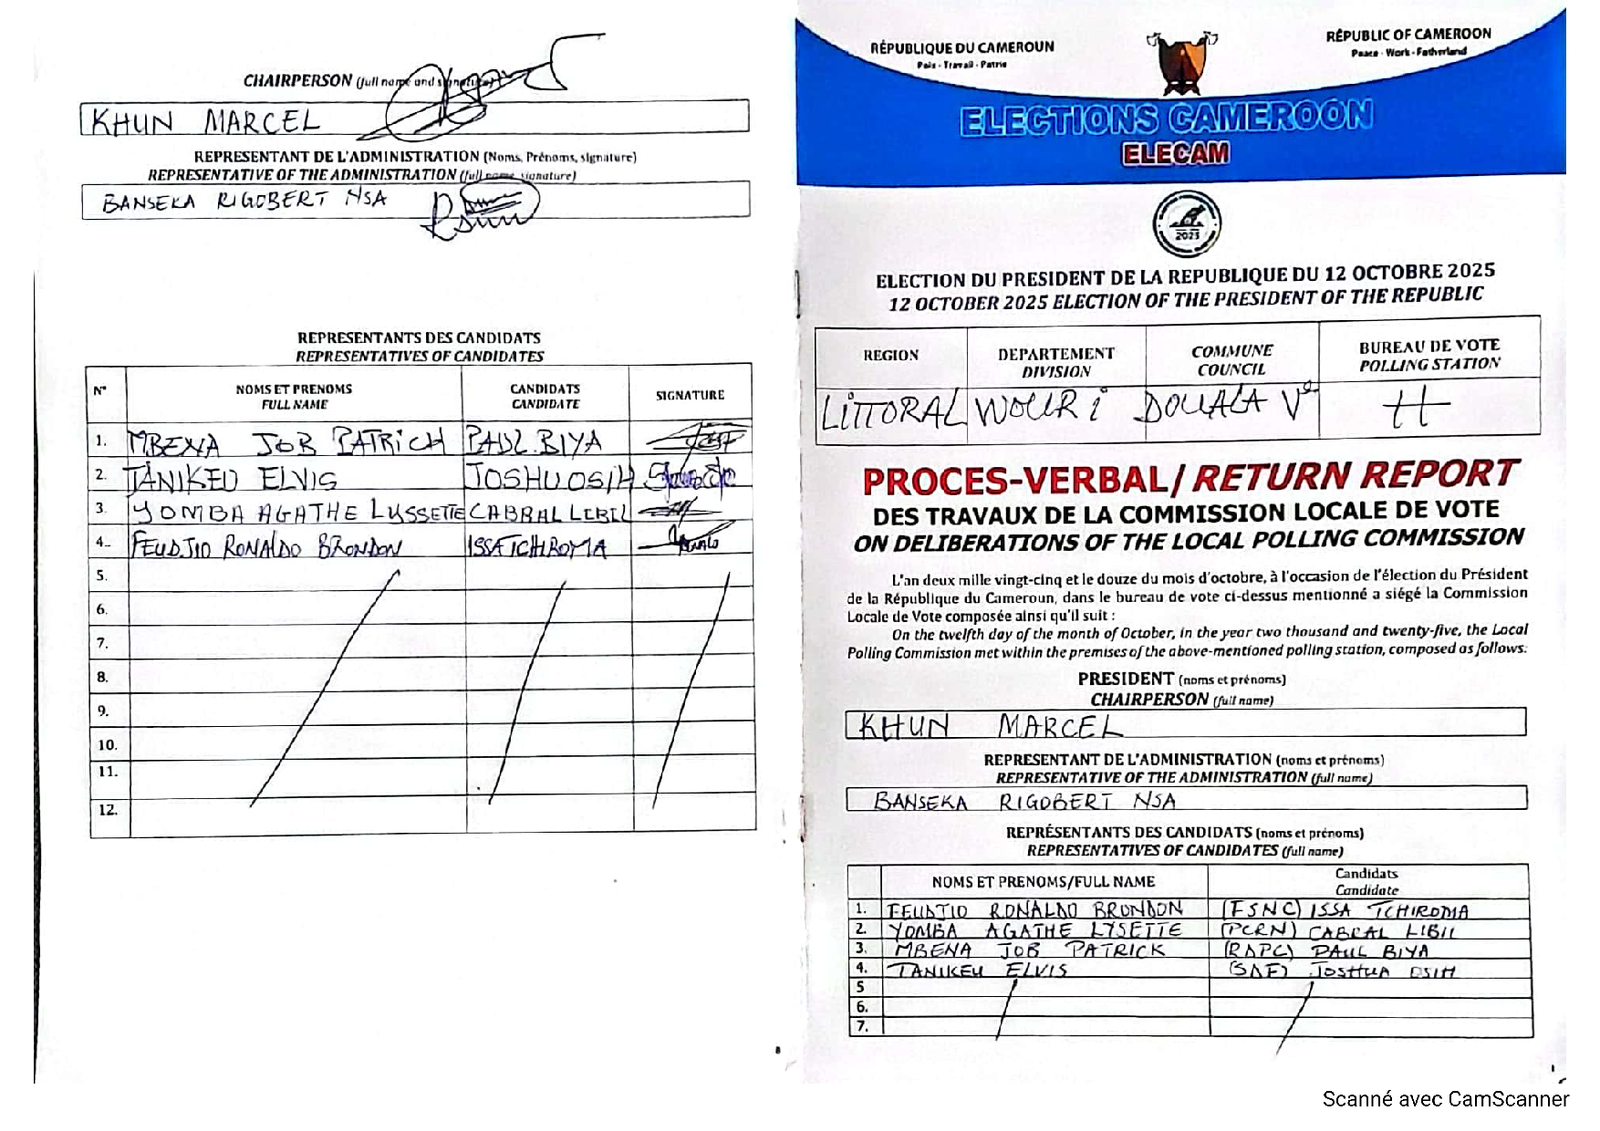 CHAIRPERSON (full name and signature)
KHUN MARCEL
REPRESENTANT DE L'ADMINISTRATION (Noms, Prénoms, signature)
REPRESENTATIVE OF THE ADMINISTRATION (full name signature)
BANSEKA RIGOBERT NSA
REPRESENTANTS DES CANDIDATS
REPRESENTATIVES OF CANDIDATES
N° NOMS ET PRENOMS CANDIDATS SIGNATURE
FULL NAME CANDIDATE
1. MBENA JOB PATRICK PAUL BIYA
2. TANIKEU ELVIS JOSHU OSIH
3. YOMBA AGATHE LYSSETTE CABRAL LIBII
4. FEUDJIO RONALDO BRONDON ISSA TCHIROMA
5.
6.
7.
8.
9.
10.
11.
12.
RÉPUBLIQUE DU CAMEROUN
Paix - Travail - Patrie
RÉPUBLIC OF CAMEROON
Peace - Work - Fatherland
ELECTIONS CAMEROON
ELECAM
2025
ELECTION DU PRESIDENT DE LA REPUBLIQUE DU 12 OCTOBRE 2025
12 OCTOBER 2025 ELECTION OF THE PRESIDENT OF THE REPUBLIC
REGION DEPARTEMENT COMMUNE BUREAU DE VOTE
DIVISION COUNCIL POLLING STATION
LITTORAL WOURI DOUALA Ve H
PROCES-VERBAL/ RETURN REPORT
DES TRAVAUX DE LA COMMISSION LOCALE DE VOTE
ON DELIBERATIONS OF THE LOCAL POLLING COMMISSION
L'an deux mille vingt-cinq et le douze du mois d'octobre, à l'occasion de l'élection du Président
de la République du Cameroun, dans le bureau de vote ci-dessus mentionné a siégé la Commission
Locale de Vote composée ainsi qu'il suit :
On the twelfth day of the month of October, in the year two thousand and twenty-five, the Local
Polling Commission met within the premises of the above-mentioned polling station, composed as follows:
PRESIDENT (noms et prénoms)
CHAIRPERSON (full name)
KHUN MARCEL
REPRESENTANT DE L'ADMINISTRATION (noms et prénoms)
REPRESENTATIVE OF THE ADMINISTRATION (full name)
BANSEKA RIGOBERT NSA
REPRÉSENTANTS DES CANDIDATS (noms et prénoms)
REPRESENTATIVES OF CANDIDATES (full name)
NOMS ET PRENOMS/FULL NAME Candidats
Candidate
1. FEUDJIO RONALDO BRONDON (FSNC) ISSA TCHIROMA
2. YOMBA AGATHE LYSETTE (PCRN) CABRAL LIBII
3. MBENA JOB PATRICK (RDPC) PAUL BIYA
4. TANIKEU ELVIS (SDF) JOSHUA OSIH
5
6.
7.
Scanné avec CamScanner